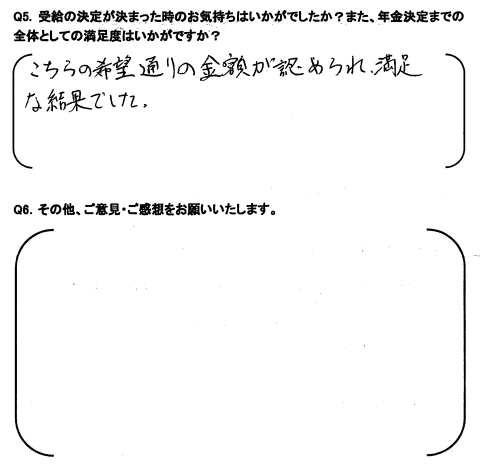 Q5. 受給の決定が決まった時のお気持ちはいかがでしたか？また、年金決定までの
全体としての満足度はいかがですか？
こちらの希望通りの金額が認められ、満足
な結果でした。
Q6. その他、ご意見・ご感想をお願いいたします。